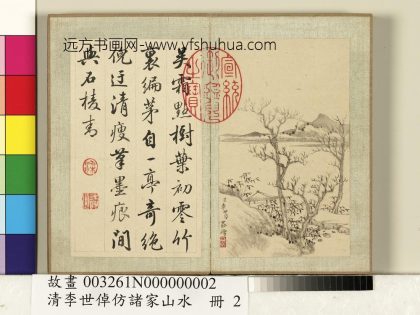 远方书画网-www.yfshuhua.com
吳霜點樹葉初零竹
裏編茅自一亭奇絶
倪迂清瘦筆墨痕間
與石棱青
宣統御覽之寶
故畫 003261N000000002
清李世倬仿諸家山水 冊 2